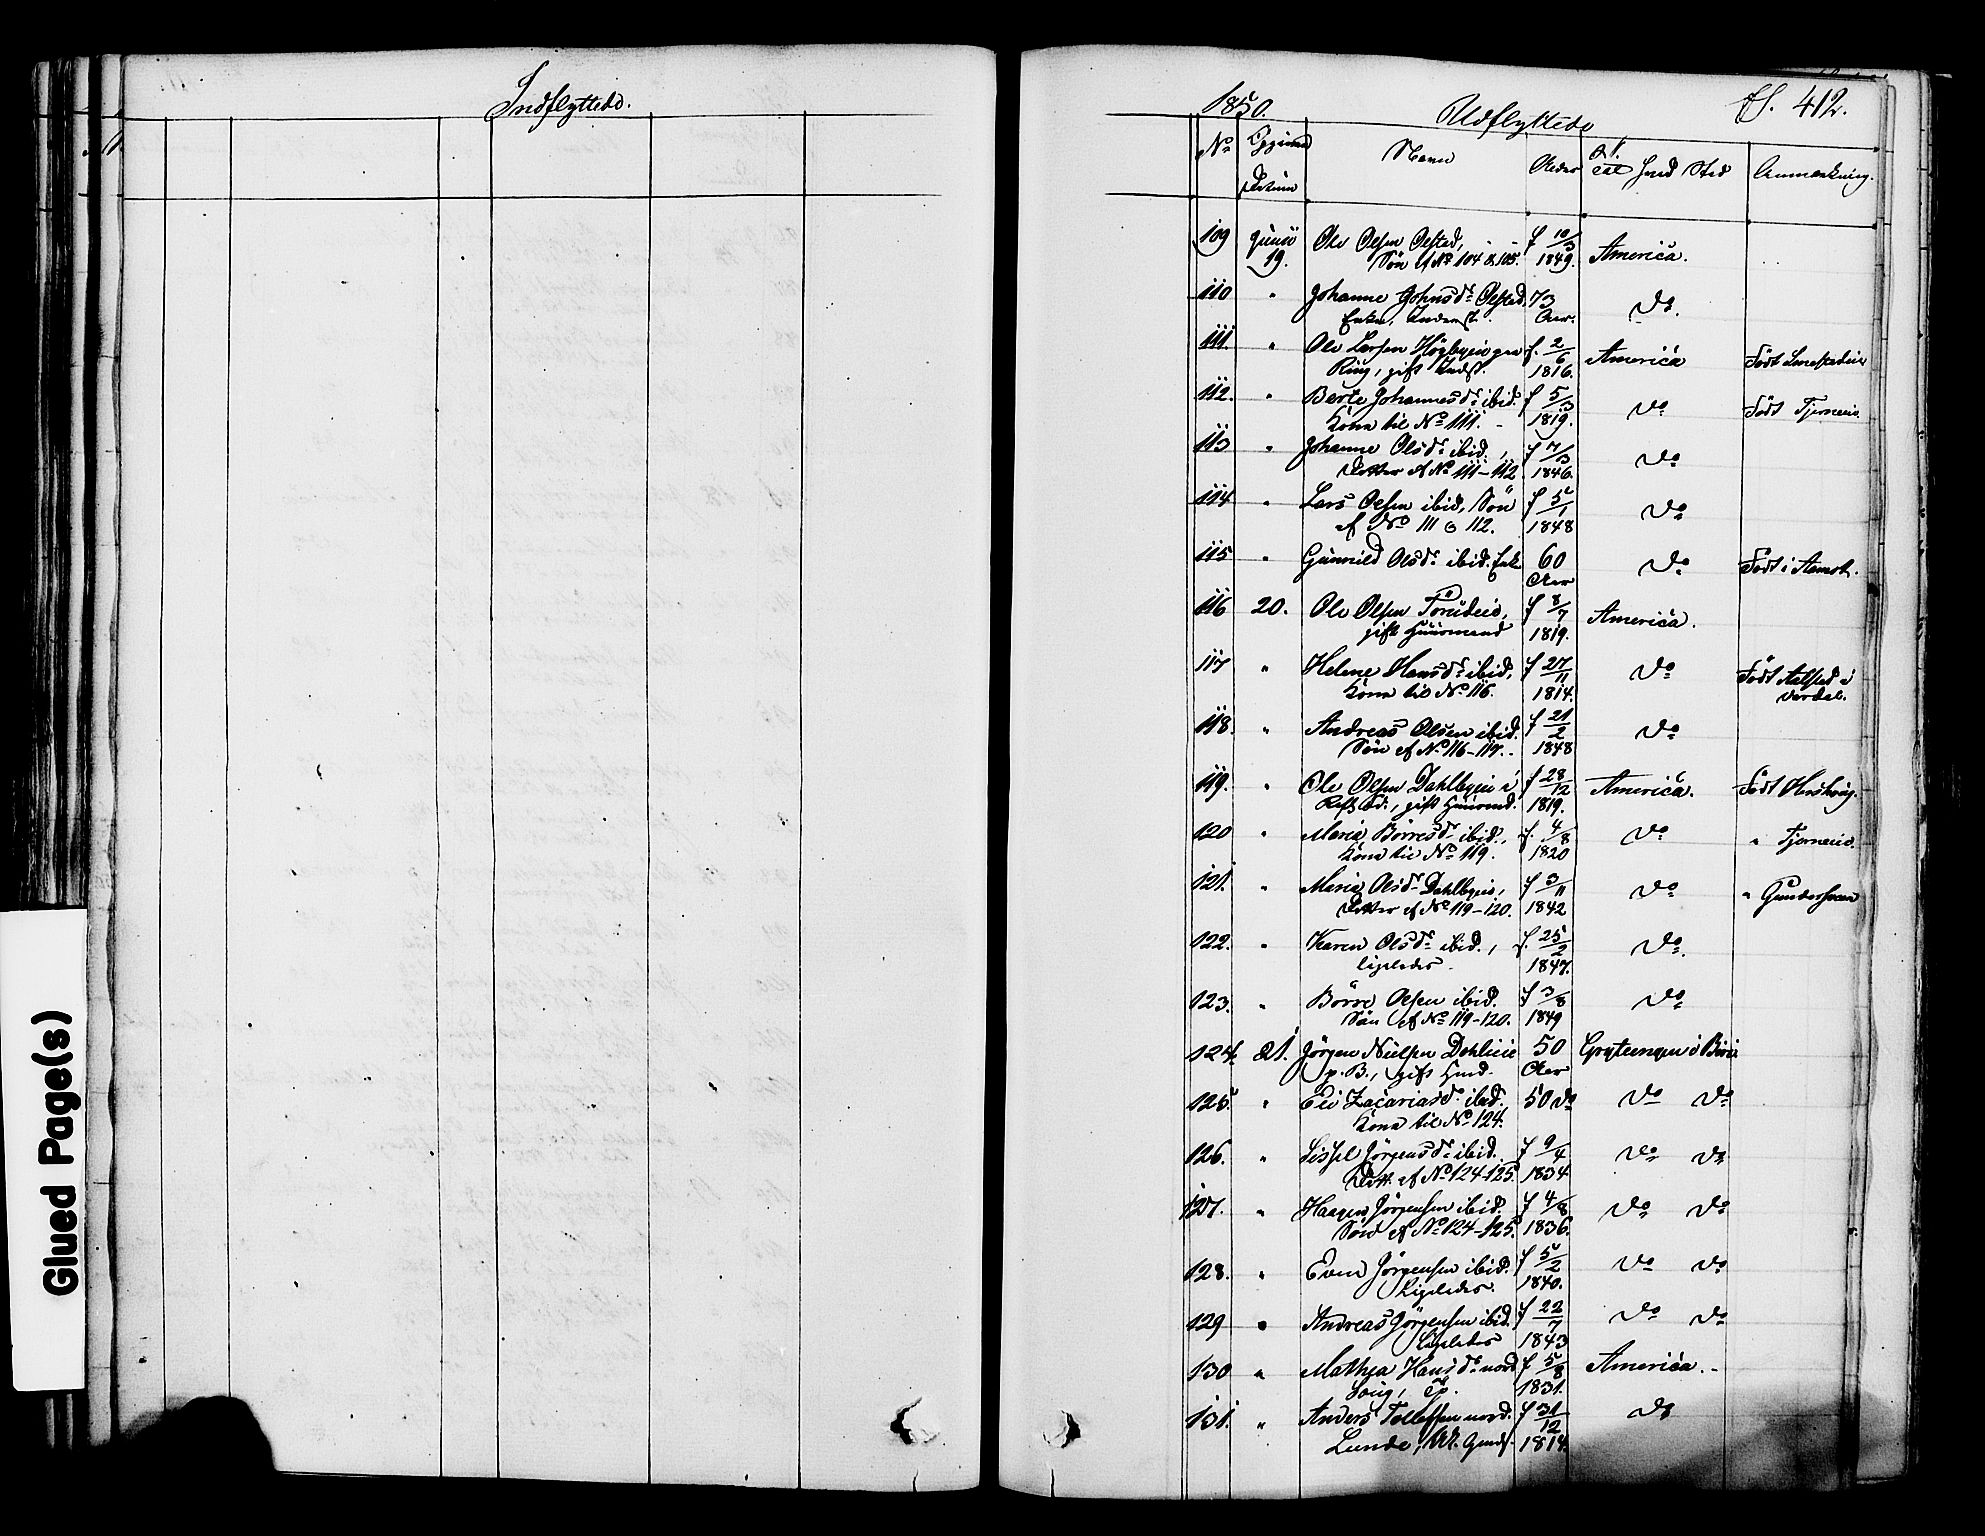 Indflyttede.
1850.
Udflyttede
412.
No
Navn
Alder
Sted
Anmærkning.
Datum
109 Junii Ole Olsen Olstad, f 10/3
19. Søn af No 104 & 105. 1849. America.
110 " Johanne Johnsdr Olstad, 73
Enke, Inderst. Aar. do.
111. " Ole Larsen f. 2/6 America Født
Ring, gift Inds. 1816.
112. " Berte Johannesdr ibid. f 5/3 do Født Tjerneie.
Kone til No 111. 1819.
113 " Johanne Olsdr ibid., f 7/3 do
Datter af No 111-112 1846.
114 " Lars Olsen ibid, Søn f 5/1 do
af No 111 o 112. 1848
115 " Gunnild Olsdr ibid. Enk 60 do Født i Aamot.
Aar
116 20. Ole Olsen f 8/7 America.
gift Huusmand 1819.
117 " Helene Hansdr ibid, f 27/11 do Født Aalsted i
Kone til No 116. 1814. Vardal.
118. " Andreas Olsen ibid. f 21/2 do
Søn af No 116-117. 1848
119. " Ole Olsen Dahlbyeie i f 28/12 America. Født
gift Huusmd. 1819.
120 " Marie Børresdr ibid., f. 4/8 do " Tjerneie.
Kone til No 119. 1820
121. " Marie Olsdr Dahlbyeie, f 3/11 do " Gundersveen
Datter af No 119-120. 1842
122. " Karen Olsdr ibid., f. 25/2 do.
ligeledes. 1847.
123. " Børre Olsen ibid. f 3/8 do
Søn af No 119-120. 1849
124. 21. Jørgen Nielsen Dahlieie 50 Grytungen i Biri
p. B., gift Hmd. Aar
125. " Eli Zachariasdr ibid. 50 do do do
Kone til No 124.
126. " Sissel Jørgensdr ibid. f 9/4 do do
Datt. af No 124-125. 1834
127. " Haagen Jørgensen ibid. f 4/8 do do
Søn af No 124-125. 1836.
128. " Even Jørgensen ibid. f 5/2 do do
Ligeledes. 1840.
129 " Andreas Jørgensen ibid. f 22/7 do do
Ligeledes 1843
130 " Mathea Hansdr nord f 5/8 America.
1831.
131. " Anders Tollefsen nord. f 31/12 do
Lunde, 1814.
Glued Page(s)